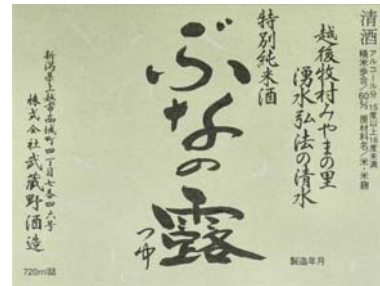 清酒
アルコール分 15度以上16度未満
精米歩合/60% 原材料名/米・米麹
越後牧村みやまの里
湧水弘法の清水
特別純米酒
ぶなの露
つゆ
製造年月
新潟県上越市高城町四丁目七番四六号
株式会社武蔵野酒造
720ml詰